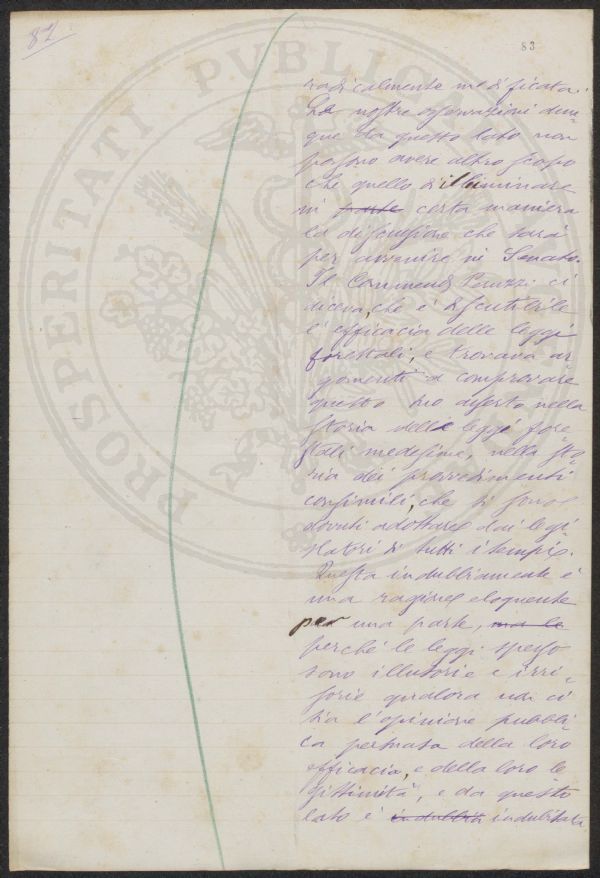 82
83
PROSPERITATI PUBLICAE
radicalmente modificata.
Le nostre osservazioni dun-
que da questo lato non
possono avere altro scopo
che quello d'illuminare
in parte certa maniera
la discussione che sarà
per avvenire in Senato.
Il Commend. Peruzzi ci
diceva, che è discutibile
l'efficacia delle leggi
forestali, e trovava ar-
gomenti a comprovare
questo suo asserto nella
storia delle leggi fore-
stali medesime, nella sto-
ria dei provvedimenti
consimili, che si sono
dovuti adottare dai legi-
slatori di tutti i tempi.
Questa indubbiamente è
una ragione eloquente
per una parte, ma le
perché le leggi spesso
sono illusorie e irri-
sorie qualora non ci
sia l'opinione pubbli-
ca persuasa della loro
efficacia, e della loro le-
gittimità, e da questo
lato è indubbia indubitata